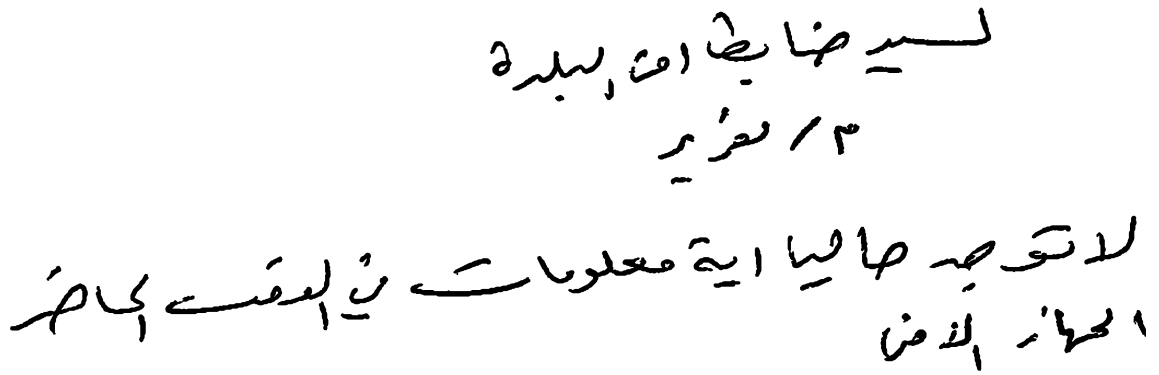 لسيد ضابط امن البلدة
م/ تقرير
لا توجد حاليا اية معلومات في الوقت الحاضر
الجهاز الأمن